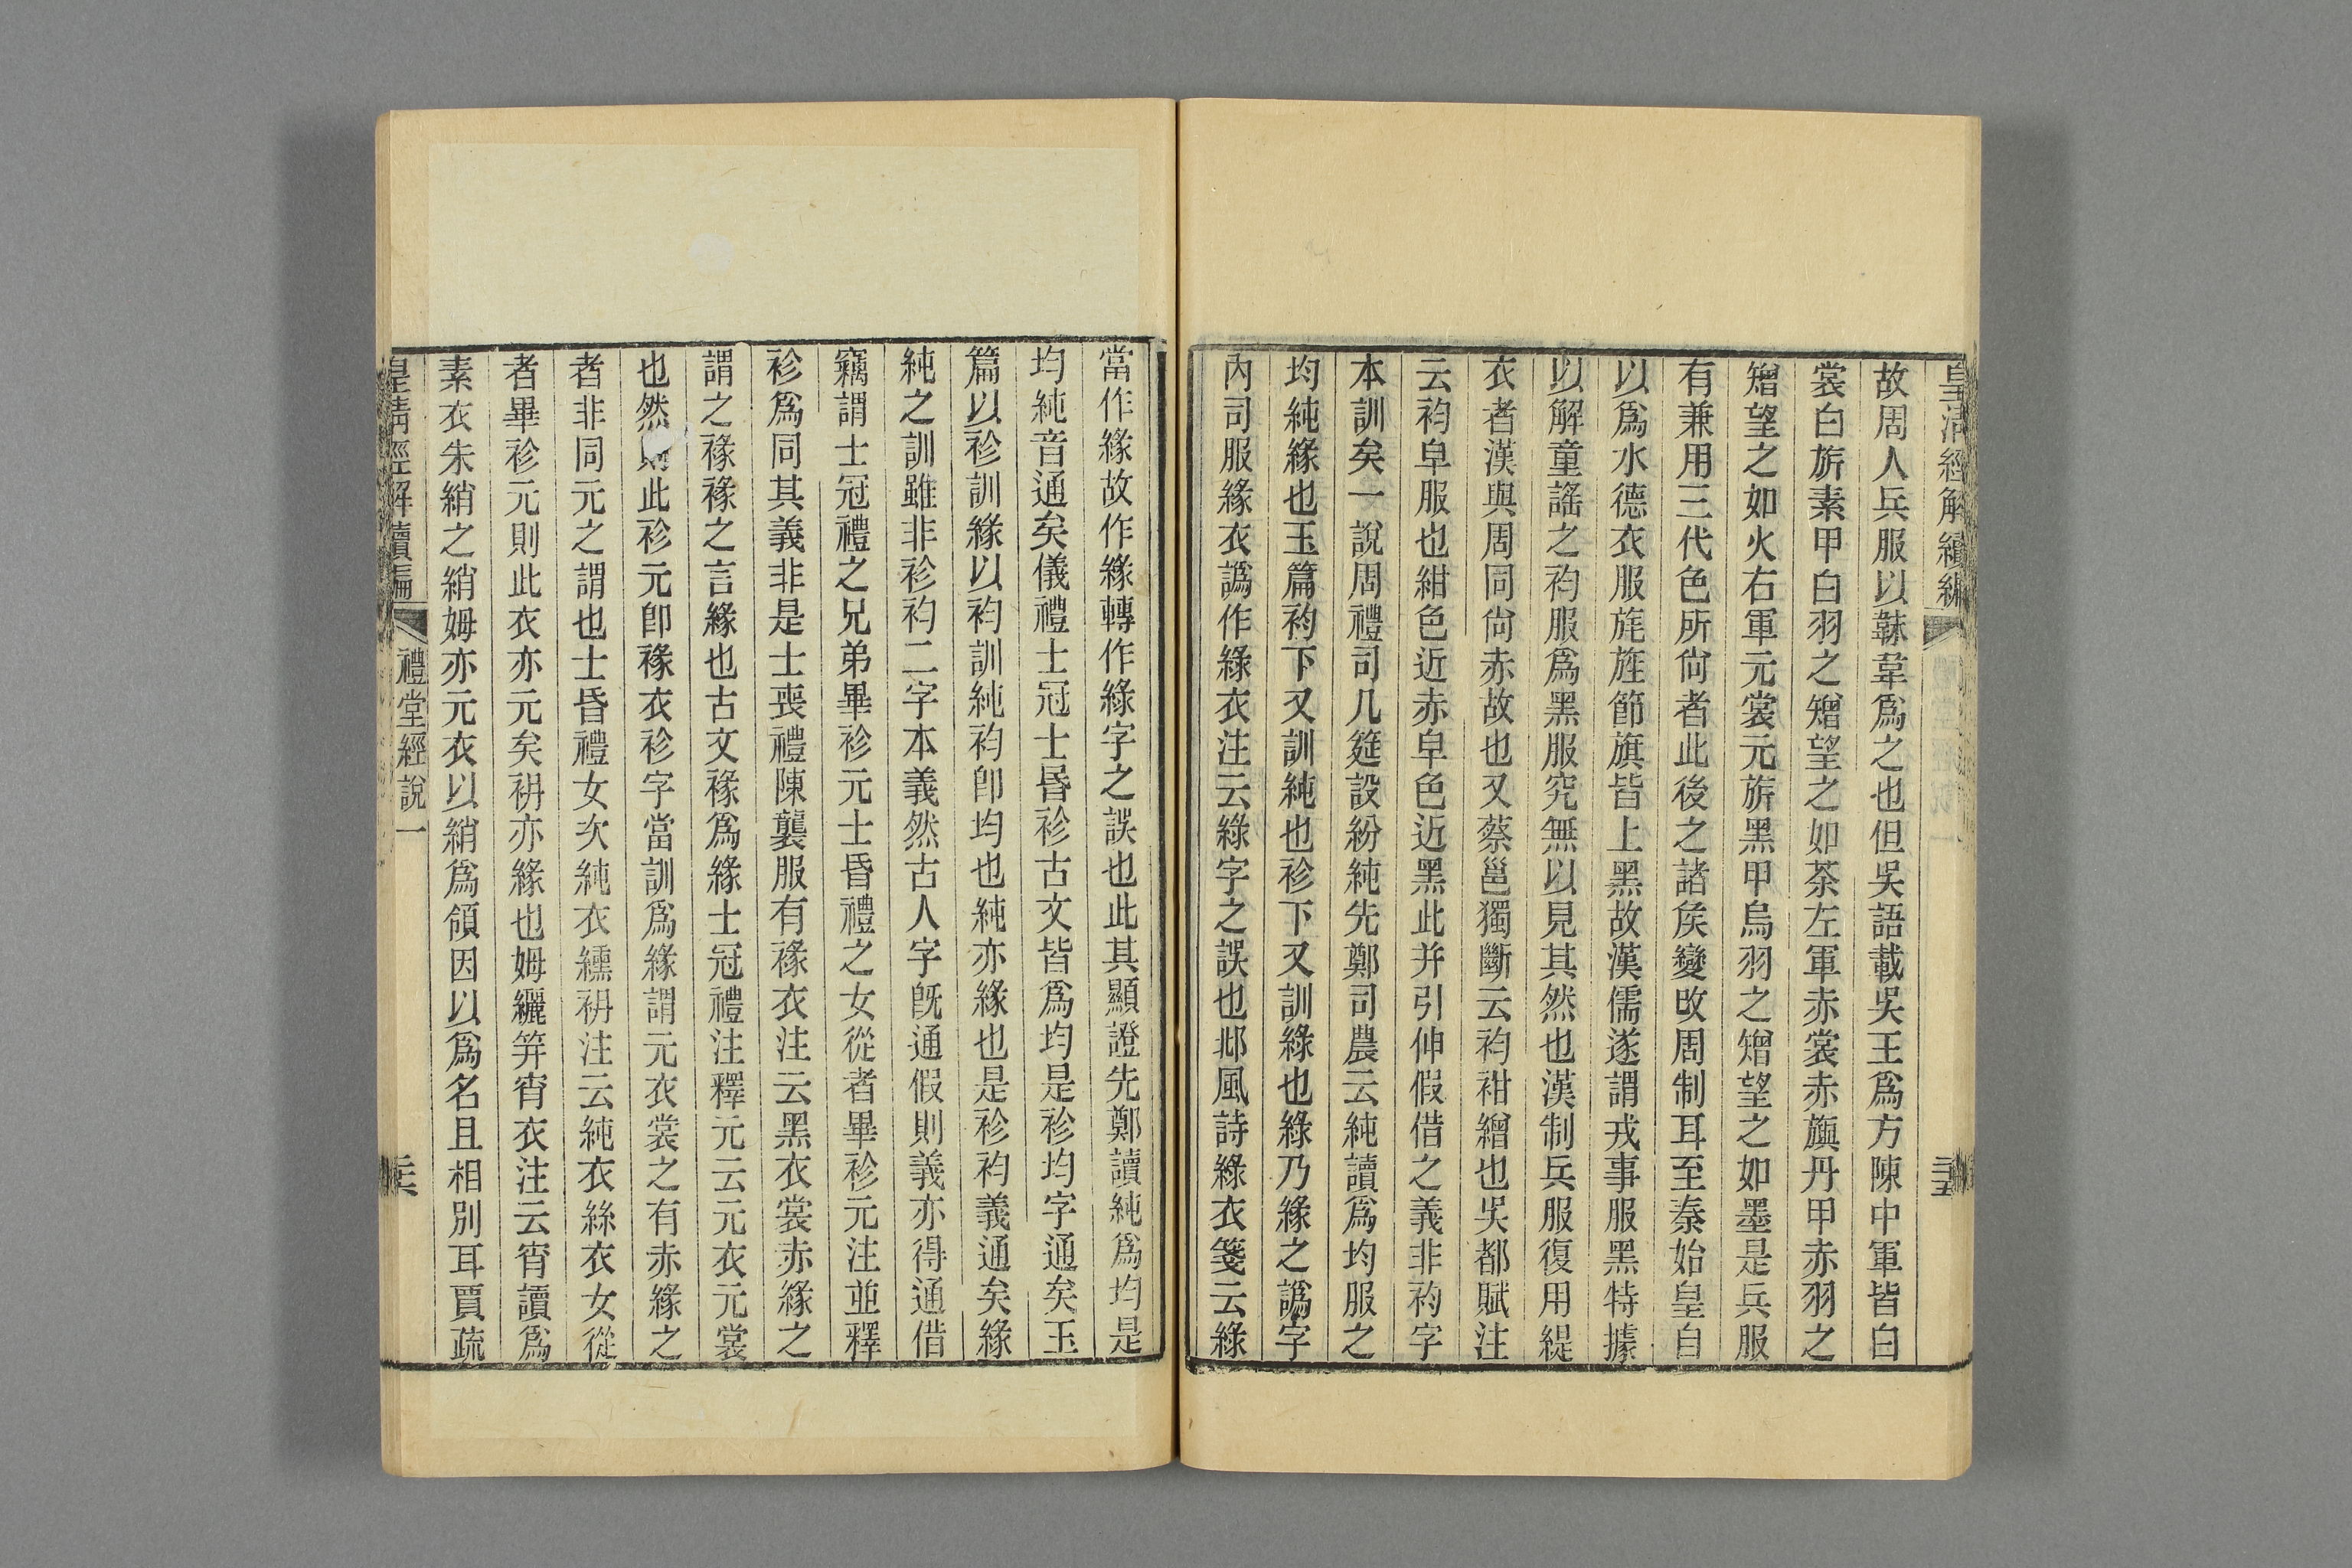 皇清經解續編
故周人兵服以韎韋爲之也但吳語載吳王爲方陳中軍皆白
裳白旂素甲白羽之矰望之如荼左軍赤裳赤旟丹甲赤羽之
矰望之如火右軍元裳元旂黑甲烏羽之矰望之如墨是兵服
有兼用三代色所尙者此後之諸矦變改周制耳至秦始皇自
以爲水德衣服旄旌節旗皆上黑故漢儒遂謂戎事服黑特據
以解童謠之袀服爲黑服究無以見其然也漢制兵服復用緹
衣者漢與周同尙赤故也又蔡邕獨斷云袀紺繒也吳都賦注
云袀皁服也紺色近赤皁色近黑此并引伸假借之義非袀字
本訓矣一說周禮司几筵設紛純先鄭司農云純讀爲均服之
均純緣也玉篇袀下又訓純也袗下又訓緣也綠乃緣之譌字
內司服緣衣譌作綠衣注云綠字之誤也邶風詩綠衣箋云綠
當作緣故作緣轉作綠字之誤也此其顯證先鄭讀純爲均是
均純音通矣儀禮士冠士昏袗古文皆爲均是袗均字通矣玉
篇以袗訓緣以袀訓純袀卽均也純亦緣也是袗袀義通矣緣
純之訓雖非袗袀二字本義然古人字旣通假則義亦得通借
竊謂士冠禮之兄弟畢袗元士昏禮之女從者畢袗元注並釋
袗爲同其義非是士喪禮陳襲服有褖衣注云黑衣裳赤緣之
謂之褖褖之言緣也古文褖爲緣士冠禮注釋元云元衣元裳
也然則此袗元卽褖衣袗字當訓爲緣謂元衣裳之有赤緣之
者非同元之謂也士昏禮女次純衣纁袡注云純衣絲衣女從
者畢袗元則此衣亦元矣袡亦緣也姆纚笄宵衣注云宵讀爲
素衣朱綃之綃姆亦元衣以綃爲領因以爲名且相別耳賈疏
皇淸經解續編
禮堂經說一